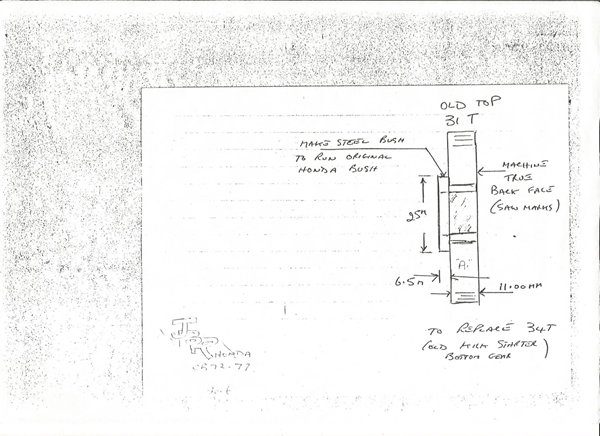 OLD TOP
31 T
MAKE STEEL BUSH
TO RUN ORIGINAL
HONDA BUSH
MACHINE
TRUE
BACK FACE
(SAW MARKS)
25м
"A"
6.5м
11.00мм
TO REPLACE 34T
(OLD KICK STARTER
BOTTOM GEAR)
JRR
HONDA
CB72-77